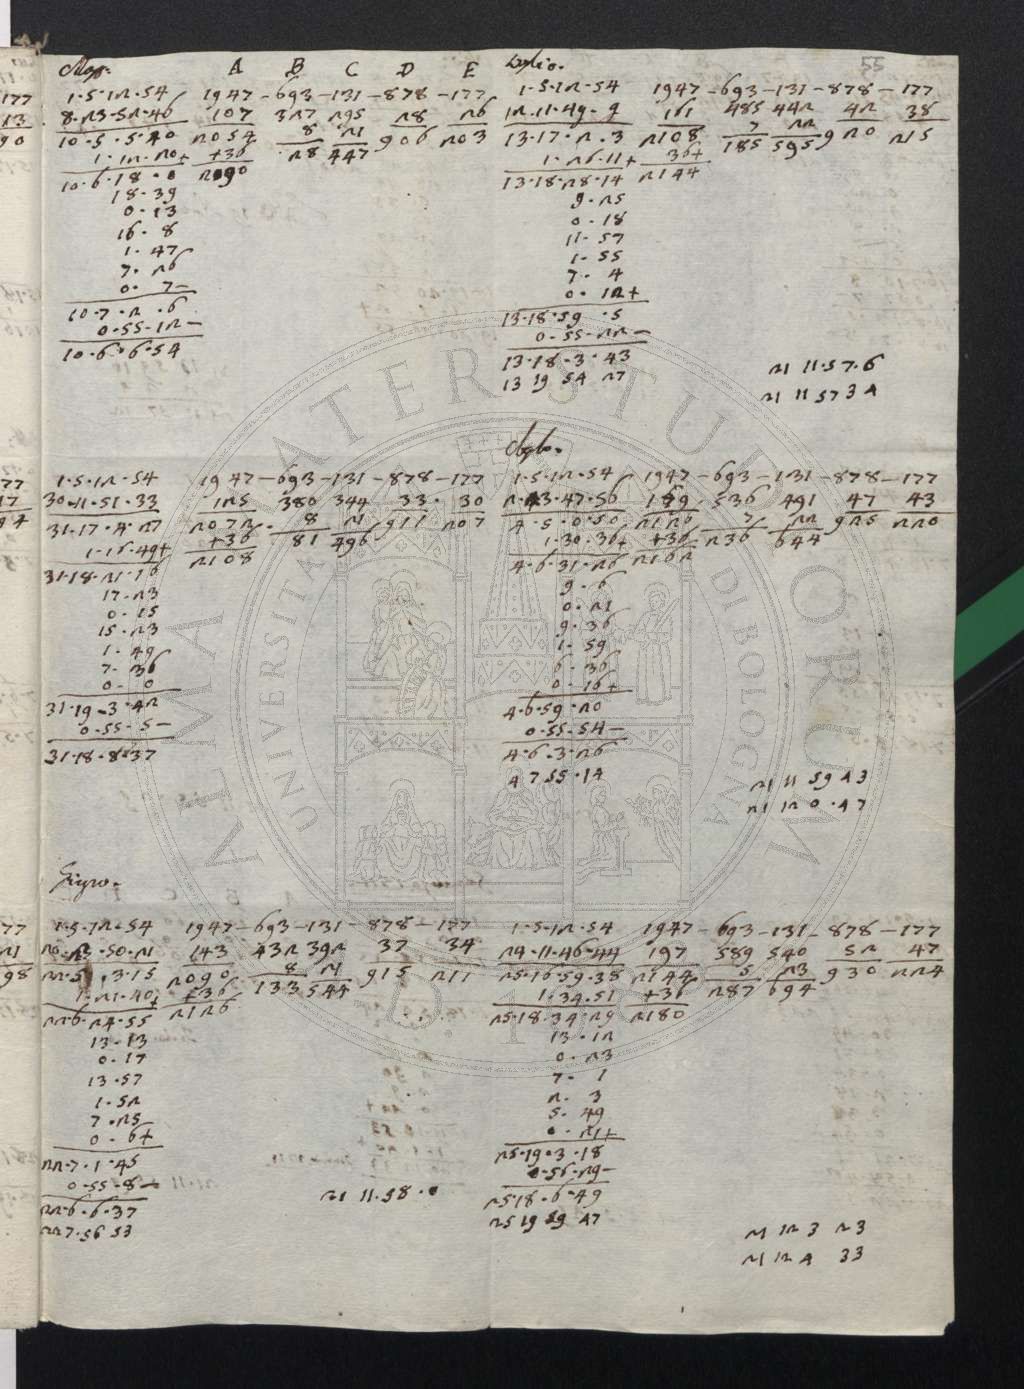 A B C D E
1.5.12.54 1947-693-131-878-177
8.23.52.46 107 327 295 28 26
10.5.5.40 2054 8 21 906 203
1.12.20+ +36 28 447
10.6.18.0 2090
18.39
0.13
16.8
1.47
7.26
0.7-
10.7.2.6
0.55.12-
10.6.6.54
Luglio.
55
1.5.12.54 1947-693-131-878-177
12.11.49.9 161 485 442 42 38
13.17.2.3 2108 7 22 920 215
1.26.11+ 36+ 185 595
13.18.28.14 2144
9.25
0.18
11.57
1.55
7.4
0.12+
13.18.59.5
0.55.22-
13.18.3.43
13 19 54 27
21 11.57.6
21 11 57 34
1.5.12.54 1947-693-131-878-177
30.11.51.33 125 380 344 33 30
31.17.4.27 2072 8 21 911 207
1.16.49+ +36 81 496
31.18.21.16 2108
17.23
0.15
15.23
1.49
7.36
0.0
31.19.3.42
0.55.5-
31.18.8.37
1.5.12.54 1947-693-131-878-177
2.23.47.56 179 536 491 47 43
4.5.0.50 2126 7 22 925 220
1.30.36+ +36 236 644
4.6.31.26 2162
9.6
0.21
9.36
1.59
6.36
0.16+
4.6.59.20
0.55.54-
4.6.3.26
4 7 55.14
21 11 59 43
21 12 0.47
Giugno.
1.5.12.54 1947-693-131-878-177
50.21 143 432 392 37 34
22.5.3.15 2090 8 21 915 211
1.21.40+ +36 133 544
22.6.24.55 2126
13.13
0.17
13.57
1.52
7.25
0.6+
22.7.1.45
0.55.8-
22.6.6.37
22 7.56 53
21 11.58.0
1.5.12.54 1947-693-131-878-177
24.11.46.44 197 589 540 52 47
25.16.59.38 2144 5 23 930 224
1.34.51 +36 287 694
25.18.34.29 2180
13.12
0.23
7.1
2.3
5.49
0.21+
25.19.3.18
0.56.29-
25.18.6.49
25 19 59 47
21 12 3 23
21 12 4 33
ALMA MATER STUDIORUM
UNIVERSITA DI BOLOGNA